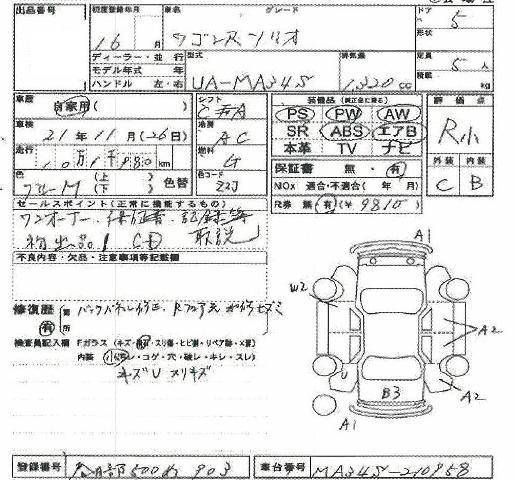 出品番号 初度登録年月 車名 グレード ドア 5
16 月 ワゴンRソリオ 形状
ディーラー・並行 型式 排気量 定員 5 人
モデル年式 年
ハンドル 左・右 UA-MA34S 1,320 cc 積載 kg
車歴 自家用 シフト 装備品(純正品に限る) 評価点
PS PW AW
車検 21年11月(26日) 冷房 AC SR ABS エアB R小
本革 TV ナビ
走行 10万1千980 km 燃料 G 保証書 無・有 外装 内装
色 ブルーM (上) (下) 色替 色コード Z2J NOx 適合・不適合( 年 月) C B
セールスポイント(正常に機能するもの) R券 無 有(¥ 9810)
ワンオーナー・保証書・記録簿
初出品! CD 取説
不良内容・欠品・注意事項等記載欄
A1
W2
修復歴 有 箇所 バックパネル修正、Rフロア
検査員記入欄 Fガラス(キズ・飛石・スリ傷・ヒビ割・リペア跡・×要)
内装(・コゲ・穴・破レ・キレ・スレ)
キズU メリキズ
A2
U
A2
B3
A1
登録番号 春日部500 903 車台番号 MA34S-210958